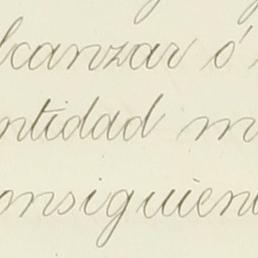 lcanzar ó
ntidad m
onsiguien